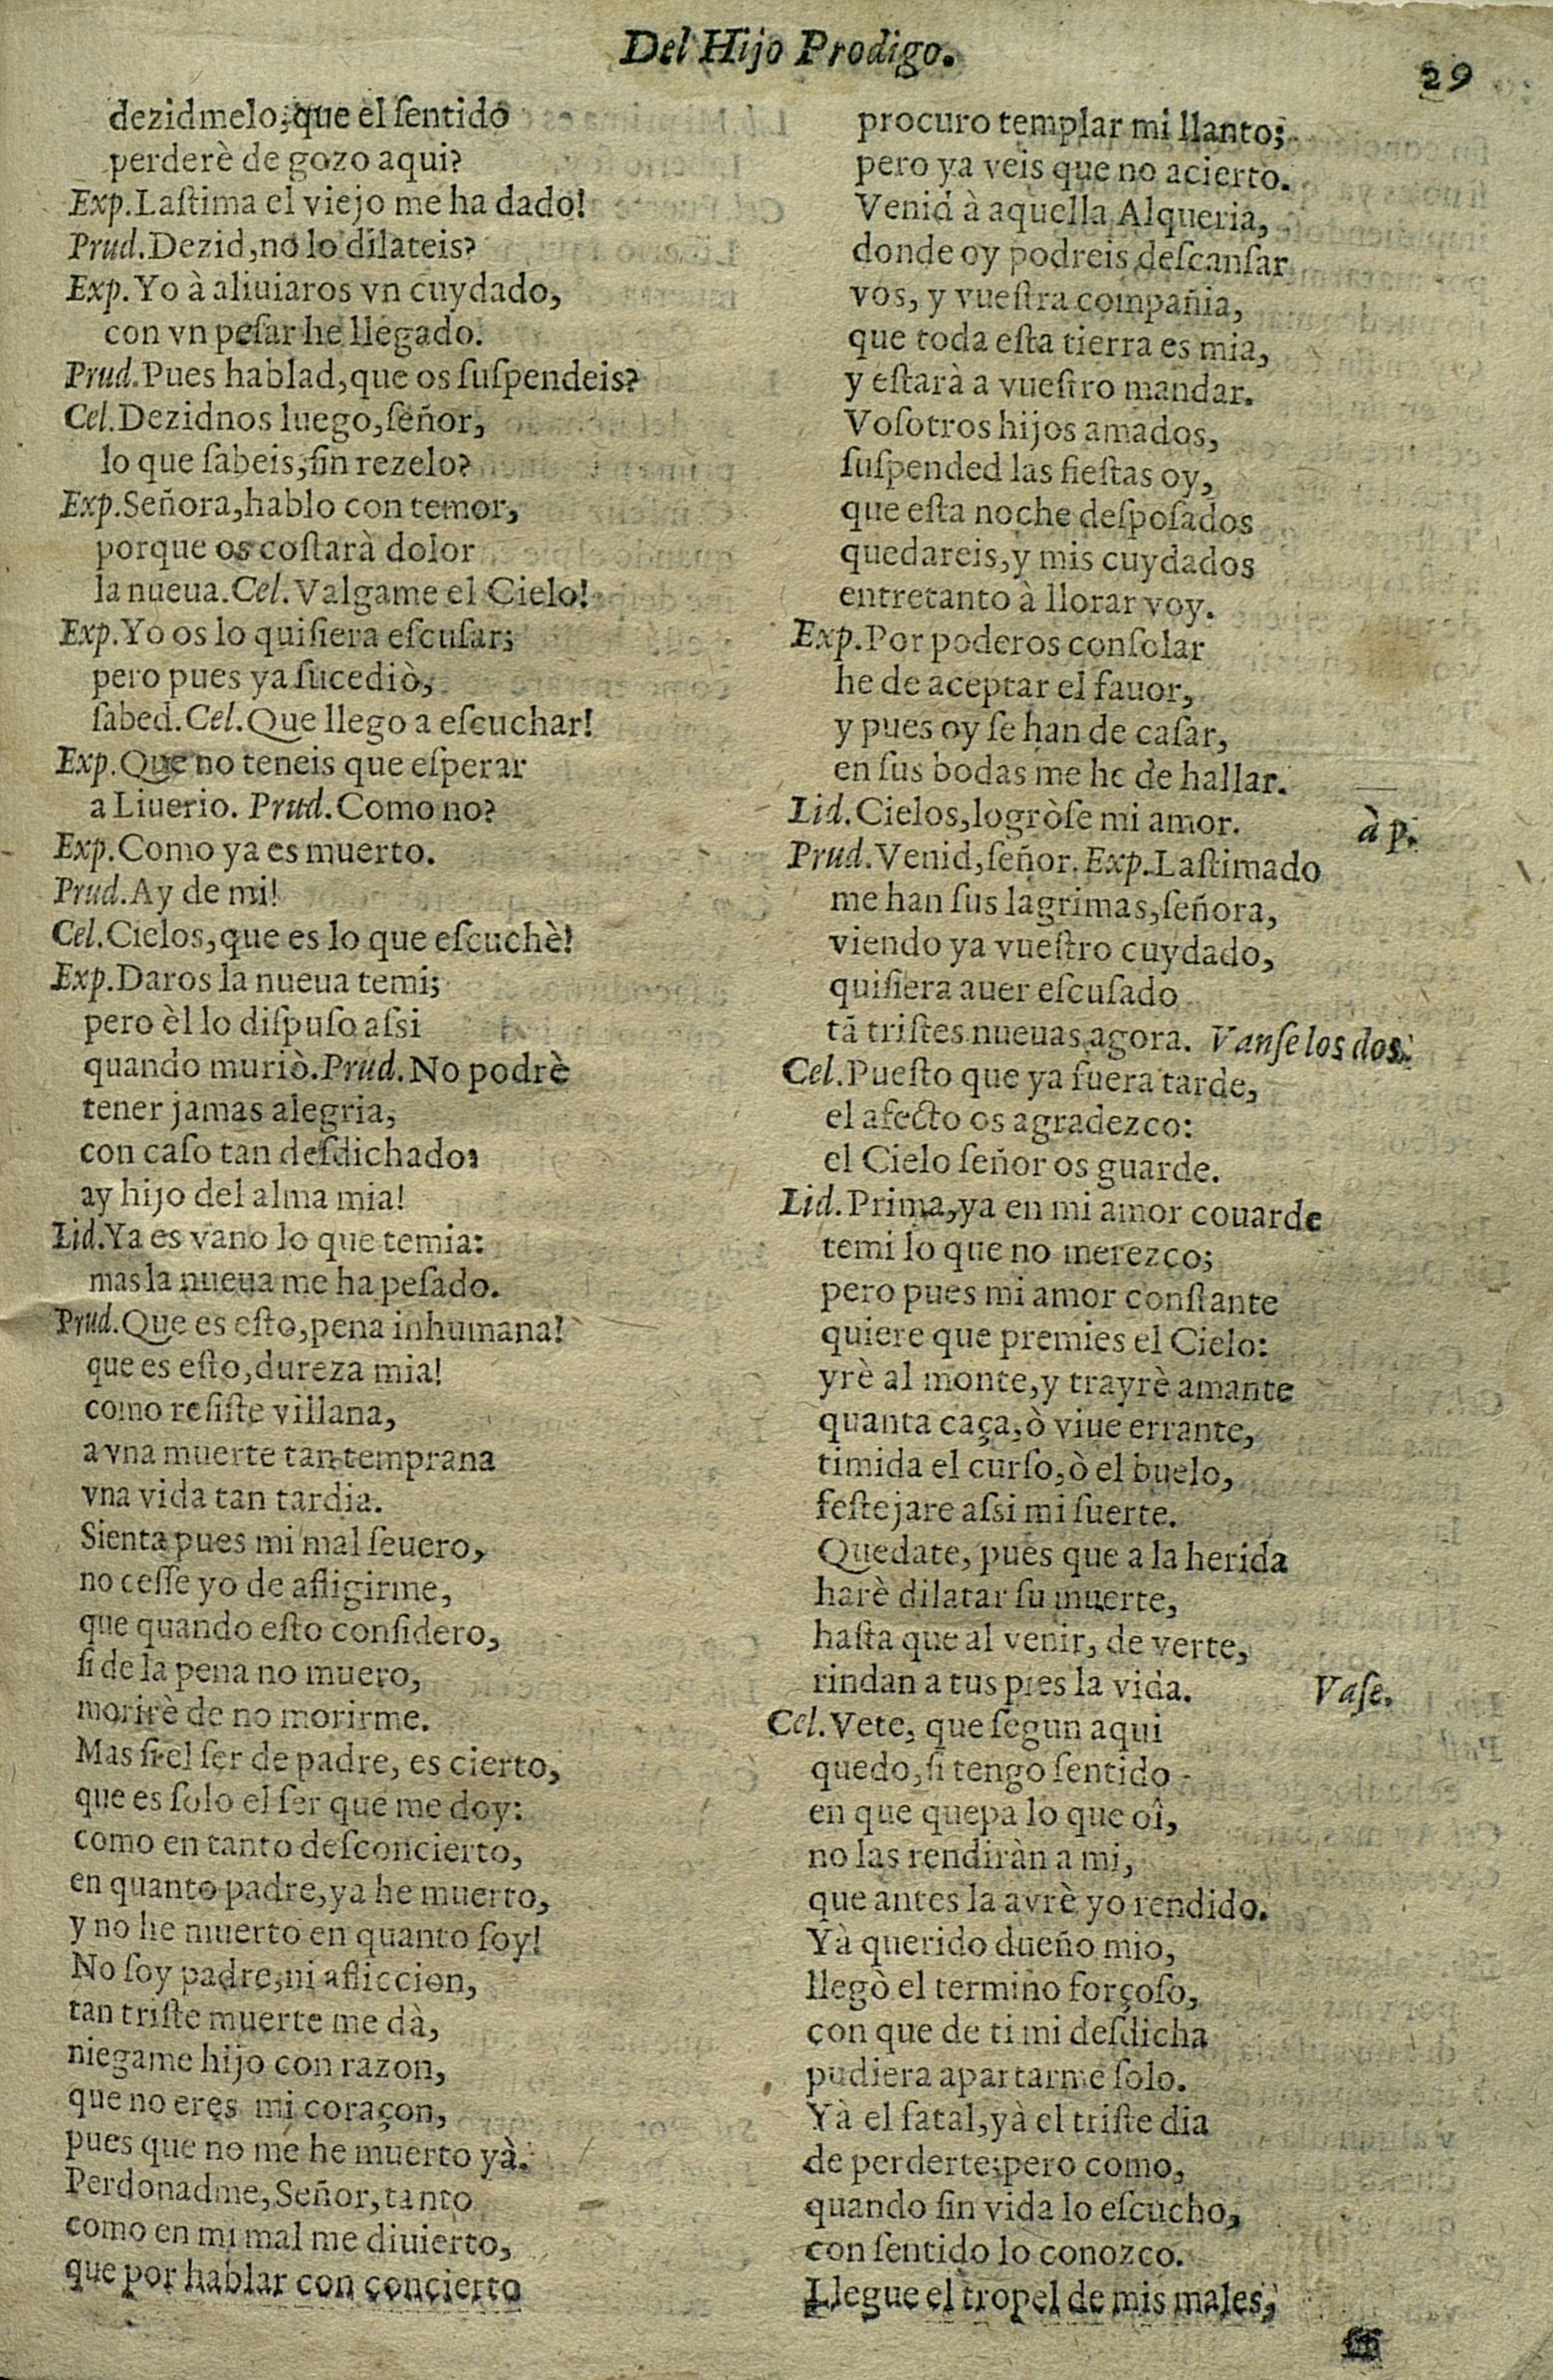 Del Hijo Prodigo.
29
dezidmelo; que el ſentido
perderè de gozo aqui?
Exp. Laſtima el viejo me ha dado!
Prud. Dezid, no lo dilateis?
Exp. Yo à aliuiaros vn cuydado,
con vn peſar he llegado.
Prud. Pues hablad, que os ſuſpendeis?
Cel. Dezidnos luego, ſeñor,
lo que ſabeis, ſin rezelo?
Exp. Señora, hablo con temor,
porque os coſtarà dolor
la nueua. Cel. Valgame el Cielo!
Exp. Yo os lo quiſiera eſcuſar;
pero pues ya ſucediò,
ſabed. Cel. Que llego a eſcuchar!
Exp. Que no teneis que eſperar
a Liuerio. Prud. Como no?
Exp. Como ya es muerto.
Prud. Ay de mi!
Cel. Cielos, que es lo que eſcuchè!
Exp. Daros la nueua temi;
pero èl lo diſpuſo aſsi
quando muriò. Prud. No podrè
tener jamas alegria,
con caſo tan deſdichado:
ay hijo del alma mia!
Lid. Ya es vano lo que temia:
mas la nueua me ha peſado.
Prud. Que es eſto, pena inhumana!
que es eſto, dureza mia!
como reſiſte villana,
a vna muerte tan temprana
vna vida tan tardia.
Sienta pues mi mal ſeuero,
no ceſſe yo de afligirme,
que quando eſto conſidero,
ſi de la pena no muero,
morirè de no morirme.
Mas ſi el ſer de padre, es cierto,
que es ſolo el ſer que me doy:
como en tanto deſconcierto,
en quanto padre, ya he muerto,
y no he muerto en quanto ſoy!
No ſoy padre, ni afliccion,
tan triſte muerte me dà,
niegame hijo con razon,
que no eres mi coraçon,
pues que no me he muerto yà.
Perdonadme, Señor, tanto
como en mi mal me diuierto,
que por hablar con concierto
procuro templar mi llanto;
pero ya veis que no acierto.
Venid à aquella Alqueria,
donde oy podreis deſcanſar
vos, y vueſtra compañia,
que toda eſta tierra es mia,
y eſtarà a vueſtro mandar.
Voſotros hijos amados,
ſuſpended las fieſtas oy,
que eſta noche deſpoſados
quedareis, y mis cuydados
entretanto à llorar voy.
Exp. Por poderos conſolar
he de aceptar el fauor,
y pues oy ſe han de caſar,
en ſus bodas me he de hallar.
Lid. Cielos, logròſe mi amor. à p.
Prud. Venid, ſeñor. Exp. Laſtimado
me han ſus lagrimas, ſeñora,
viendo ya vueſtro cuydado,
quiſiera auer eſcuſado
tã triſtes nueuas agora. Vanſe los dos.
Cel. Pueſto que ya fuera tarde,
el afecto os agradezco:
el Cielo ſeñor os guarde.
Lid. Prima, ya en mi amor couarde
temi lo que no merezco;
pero pues mi amor conſtante
quiere que premies el Cielo:
yrè al monte, y trayrè amante
quanta caça, ò viue errante,
timida el curſo, ò el buelo,
feſtejare aſsi mi ſuerte.
Quedate, pues que a la herida
harè dilatar ſu muerte,
haſta que al venir, de verte,
rindan a tus pies la vida. Vaſe.
Cel. Vete, que ſegun aqui
quedo, ſi tengo ſentido
en que quepa lo que oî,
no las rendiràn a mi,
que antes la avrè yo rendido.
Yà querido dueño mio,
llegò el termino forçoſo,
con que de ti mi deſdicha
pudiera apartarme ſolo.
Yà el fatal, yà el triſte dia
de perderte; pero como,
quando ſin vida lo eſcucho,
con ſentido lo conozco.
Llegue el tropel de mis males,